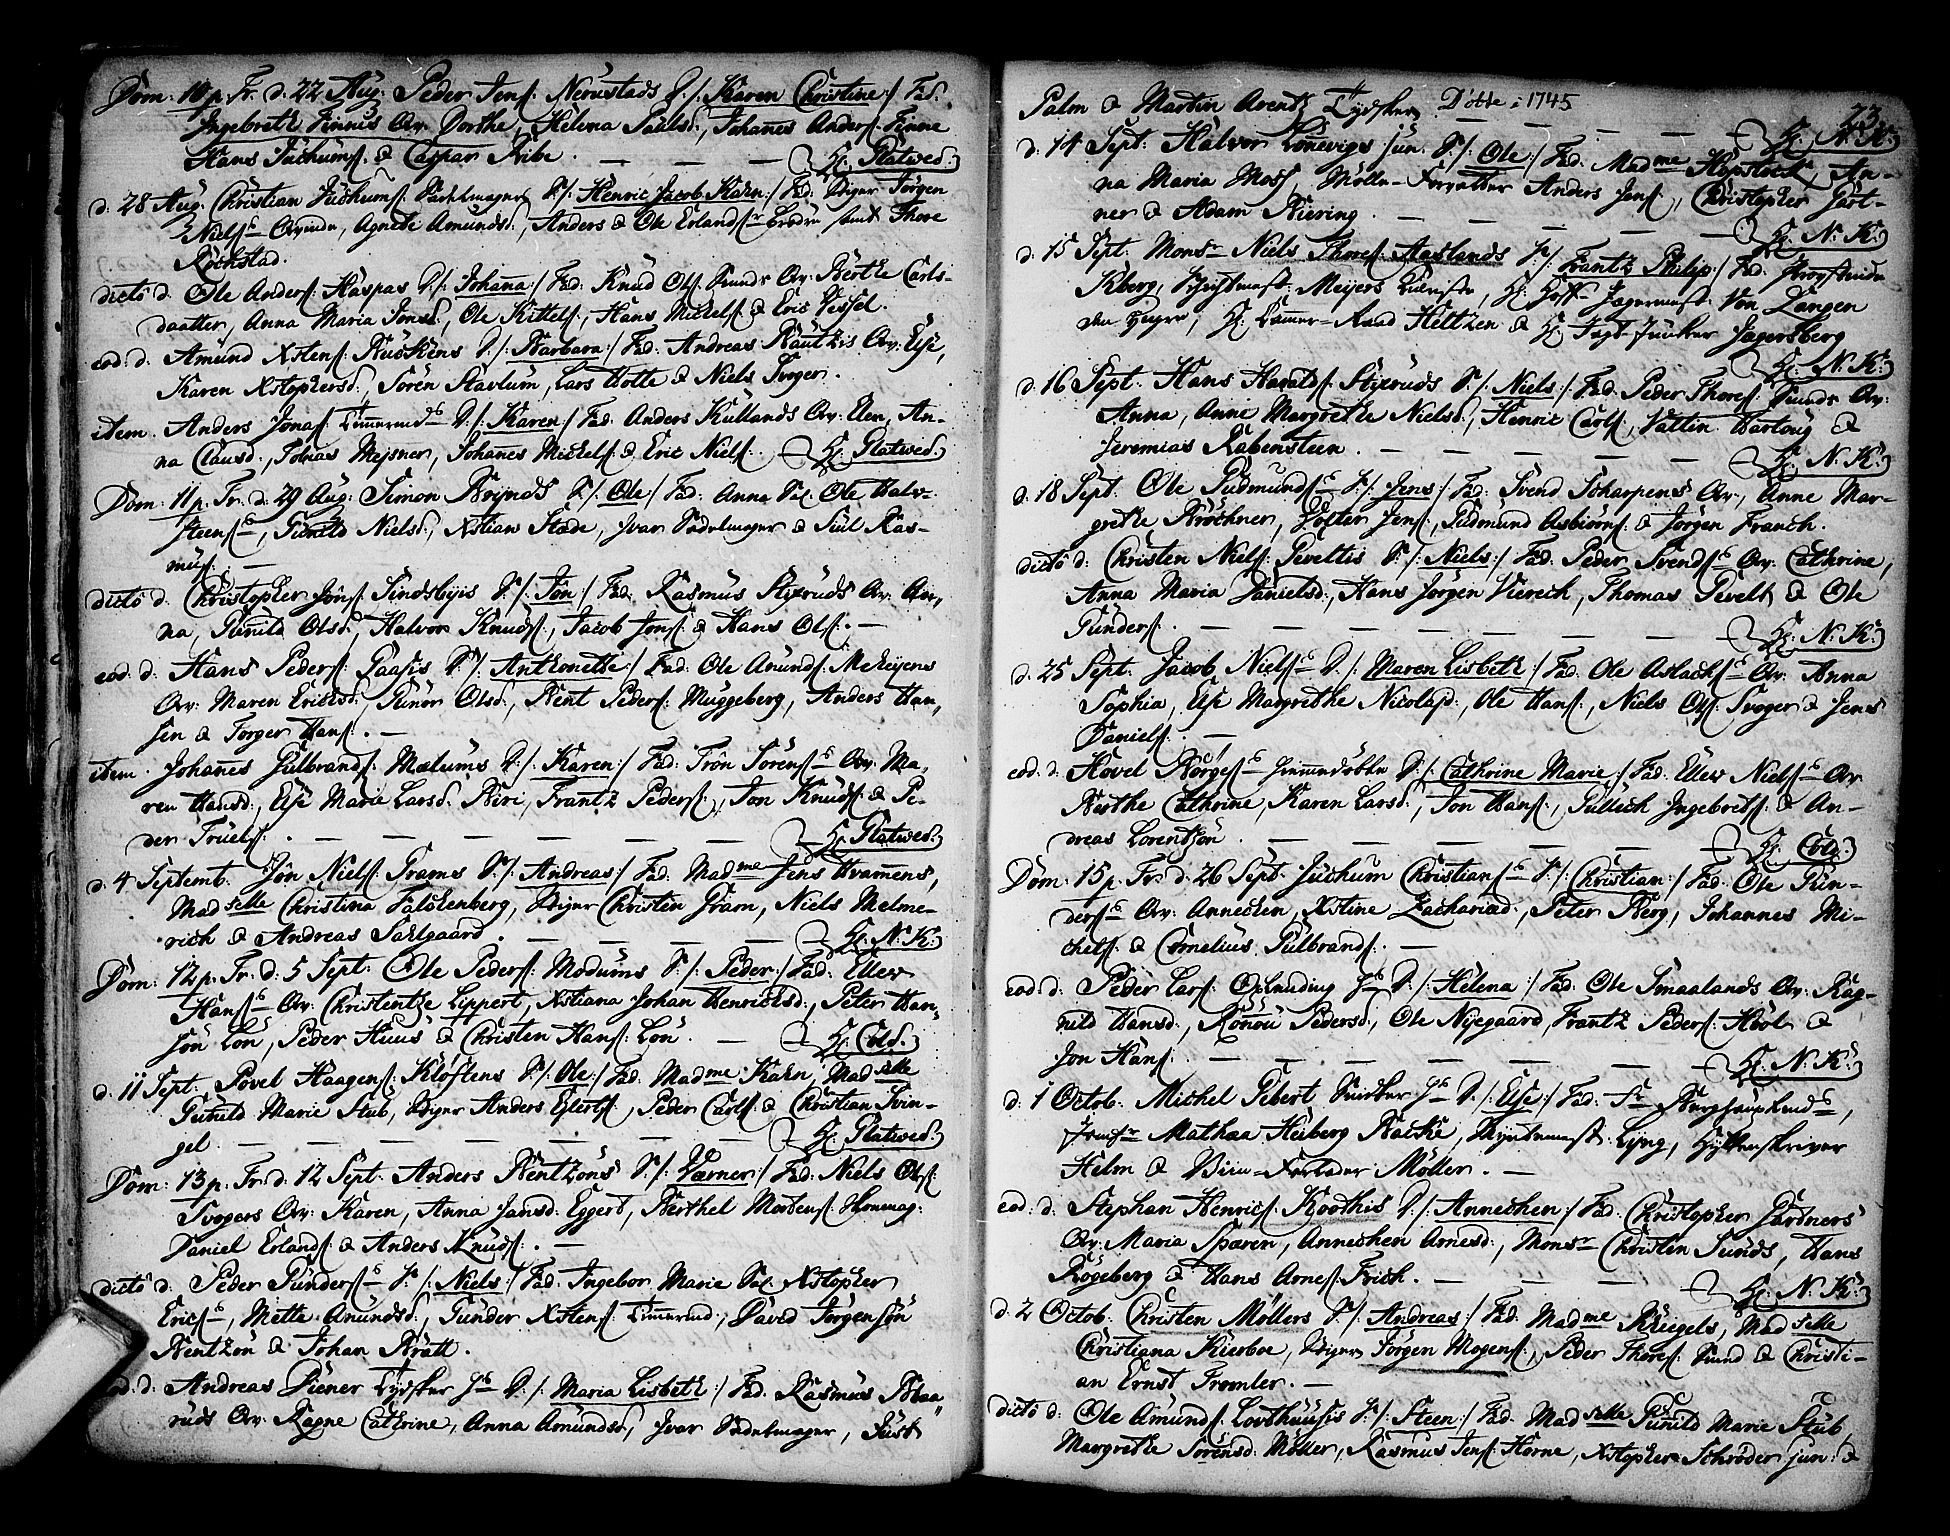 Dom: 10 p. Tr. d. 22 Aug. Peder Jens: Nerustads D. /: Karen Christine :/ Fad.
Ingebreth Finnes Qv. Dorthe, Helena Pauls d., Johanes Anders: Finne
Hans Juchums: & Caspar Ribe. H: Flatwed.
d. 28 Aug. Christian Juchums: Sadelmagers S. /: Henric Jacob Kahn :/ Fad. Jørgen
Niels: Qvinde, Agnete Amunds d., Anders & Ole Erlands: Brødre samt Thore
Rochstad.
dicto d. Ole Anders: Haspas D. /: Johana :/ Fad. Knud Ols: Sunds Qv. Berthe Carls-
daatter, Anna Maria Jons d., Ole Kittels:, Hans Mickels: & Eric Vessel.
eod. d. Amund Xstens: Buskens D. /: Barbara :/ Fad. Andreas Rautzis Qv. Else,
Karen Xstophers d., Søren Stavlum, Lars Botte & Niels Svoger.
item. Anders Jonas: D. /: Karen :/ Fad. Anders Kullands Qv. Elen, An-
na Claus d., Tobias Mejsner, Johanes Mickels: & Eric Niels: H: Flatwed.
Dom: 11 p. Tr. d. 29 Aug: Simon Brynds S. /: Ole :/ Fad. Anna Sal. Ole Halv-
Steens:, Gunild Niels d., Xstian Stade, Ivar Sadelmager & Siul Ras-
mus:
dicto d. Christopher Jons: Lindsbyis S. /: Jon :/ Fad. Rasmus Stixruds Qv. An,
na, Gunild Ols d., Halvor Knuds:, Jacob Jons: & Hans Ols:
eod. d. Hans Peders: Paasis D. /: Anthonethe :/ Fad. Ole Amunds: Mehejens
Qv. Maren Erics d., Gunor Ols d., Bent Peders: Muggeberg, Anders Han,
sen & Torger Hans:
item. Johanes Gulbrands: Mælums D. /: Karen :/ Fad. Trøn Sørens: Qv. Ma,
ren Hans d., Else Marie Lars d. Biri, Frantz Peders:, Jon Knuds: & Pe-
der Truels: H: Flatwed.
d. 4 Septemb. Jon Niels: Trams S. /: Andreas :/ Fad. Madme Jens Bramens,
Madselle Christina Falckenberg, Christen Gram, Niels Melme-
rich & Andreas Sælgaard. H: N. K.
Dom: 12 p. Tr. d. 5 Sept. Ole Peders: Modums S. /: Peder :/ Fad. Ellev
Hans: Qv. Christenthe Lippert, Xstiana Johan Henrics d., Peter Han,
søn Løn, Peder Huus & Christen Hans: Løn. H: Cold.
d. 11 Sept. Povel Haagens: Kløftens S. /: Ole :/ Fad. Madme Kahn, Madselle
Gunild Marie Stub, Anders Eilerts:, Peder Carls: & Christian Svin-
gel. H: Flatwed.
Dom: 13 p. Tr. d. 12 Sept. Anders Bentzøns S. /: Værner :/ Fad. Niels Ols:
Svogers Qv. Karen, Anna Jans d. Eggert, Berthel Mortens:
Daniel Erlands: & Anders Knuds:
dicto d. Peder Gunders: S. /: Niels :/ Fad. Ingebor Marie Sal. Xstopher
Erics:, Mette Amunds d., Gunder Xstens:, David Jørgensøn
Bentzøn & Johan Bratt.
eod. d. Andreas Diener Tydsker D. /: Maria Lisbeth :/ Fad. Rasmus Blaa-
ruds Qv. Ragne Cathrine, Anna Amunds d., Ivar Sadelmager, Just
Palm & Martin Arentz Tydsker. Døbte i 1745 23.
H: N. K.
d. 14 Sept. Halvor Lønevigs jun. S. /: Ole :/ Fad. Madme Hopstock, An-
na Maria Moss, Mølle-Forvalter Anders Jens:, Christopher Gart-
ner & Adam Kiering. H: N. K.
d. 15 Sept. Monsr Niels Thores: Aaslands S. /: Frantz Philip :/ Fad.
Kberg, Meyers, H: Hoff-Jægermest. Von Langen
H: Cammer-Raad Heltzen & H: Jagt-Juncker Jagersberg
H: N. K.
d. 16 Sept. Hans Haralds: Stixruds S. /: Niels :/ Fad. Peder Thores: Sunds Qv.
Anna, Anne Margrethe Niels d., Henric Carls:, Vattin Hartvig &
Jeremias Rabensteen. H: N. K.
d. 18 Sept. Ole Gudmunds: S. /: Jens :/ Fad. Svend Scharpens Qv., Anne Mar-
grethe Brøckner, Jens:, Gudmund Asbiørns: & Jørgen Franch.
dicto d. Christen Niels: Geveltis S. /: Niels :/ Fad. Peder Svends: Qv. Cathrine,
Anna Maria Daniels d., Hans Jørgen Viereck, Thomas Gevelt & Ole
Gunders: H: N. K.
d. 25 Sept. Jacob Niels: D. /: Maren Lisbeth :/ Fad. Ole Aslachs: Qv. Anna
Sophia, Else Margrethe Nicolaj d., Ole Hans:, Niels Ols: Svoger & Jens
Daniels:
eod. d. Hovel Børges: D. /: Cathrine Marie :/ Fad. Ellev Niels: Qv
Berthe Cathrine, Karen Lars d., Jon Hans:, Gullich Ingebrets: & An-
dreas Lorentzøn. H: Cold.
Dom: 15 p. Tr. d. 26 Sept. Juchum Christians: S. /: Christian :/ Fad. Ole Gun-
ders: Qv. Annecken, Xstine Zacharias d., Peter Berg, Johannes Mi-
chels: & Cornelius Gulbrands:
eod. d. Peder Lars: D. /: Helena :/ Fad. Ole Smaalands Qv. Rag-
nild Hans d., Rønou Peders d., Ole Nyegaard, Frantz Peders: Hool &
Jon Hans: H: N. K.
d. 1 Octob. Michel Gebert D. /: Else :/ Fad.
Mathea Heiberg Batske, Lyng, Hytteskriver
Helm & Møller.
eod. d. Stephan Henrics: Koothis D. /: Annechen :/ Fad. Christopher Gardners
Qv. Maria Sparen, Annechen Arnes d., Monsr Christen Sunds, Hans
Rogeberg & Hans Arnes: Frich. H: N. K.
d. 2 Octob. Christen Møllers S. /: Andreas :/ Fad. Madme Kriegels, Madselle
Christiana Kierboe, Jørgen Mogens:, Peder Thores: Sund & Christi-
an Ernst Tromler.
dicto d. Ole Amunds: Lovthuusis S. /: Steen :/ Fad. Madselle Gunild Marie Stub
Margrethe Sørens d. Møller, Rasmus Jens: Horne, Xstopher Schrøder jun. &